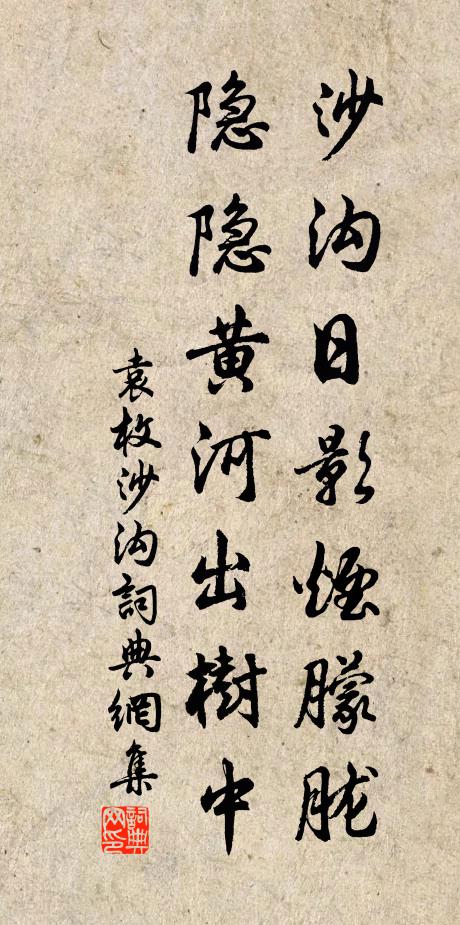 沙沟日影煙朦胧
隐隐黄河出樹中
袁枚沙沟詞典網集
詞典网印